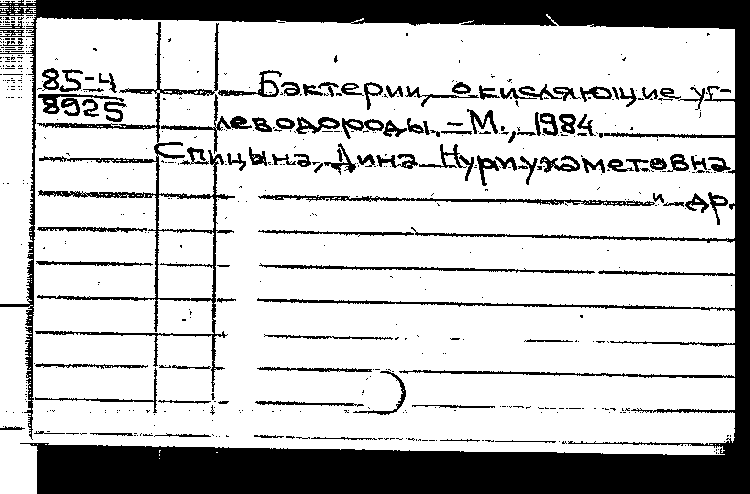 85-4
8925
Бактерии, окисляющие уг-
леводороды. – М., 1984.
Спицына, Дина Нурмухаметовна
и др.